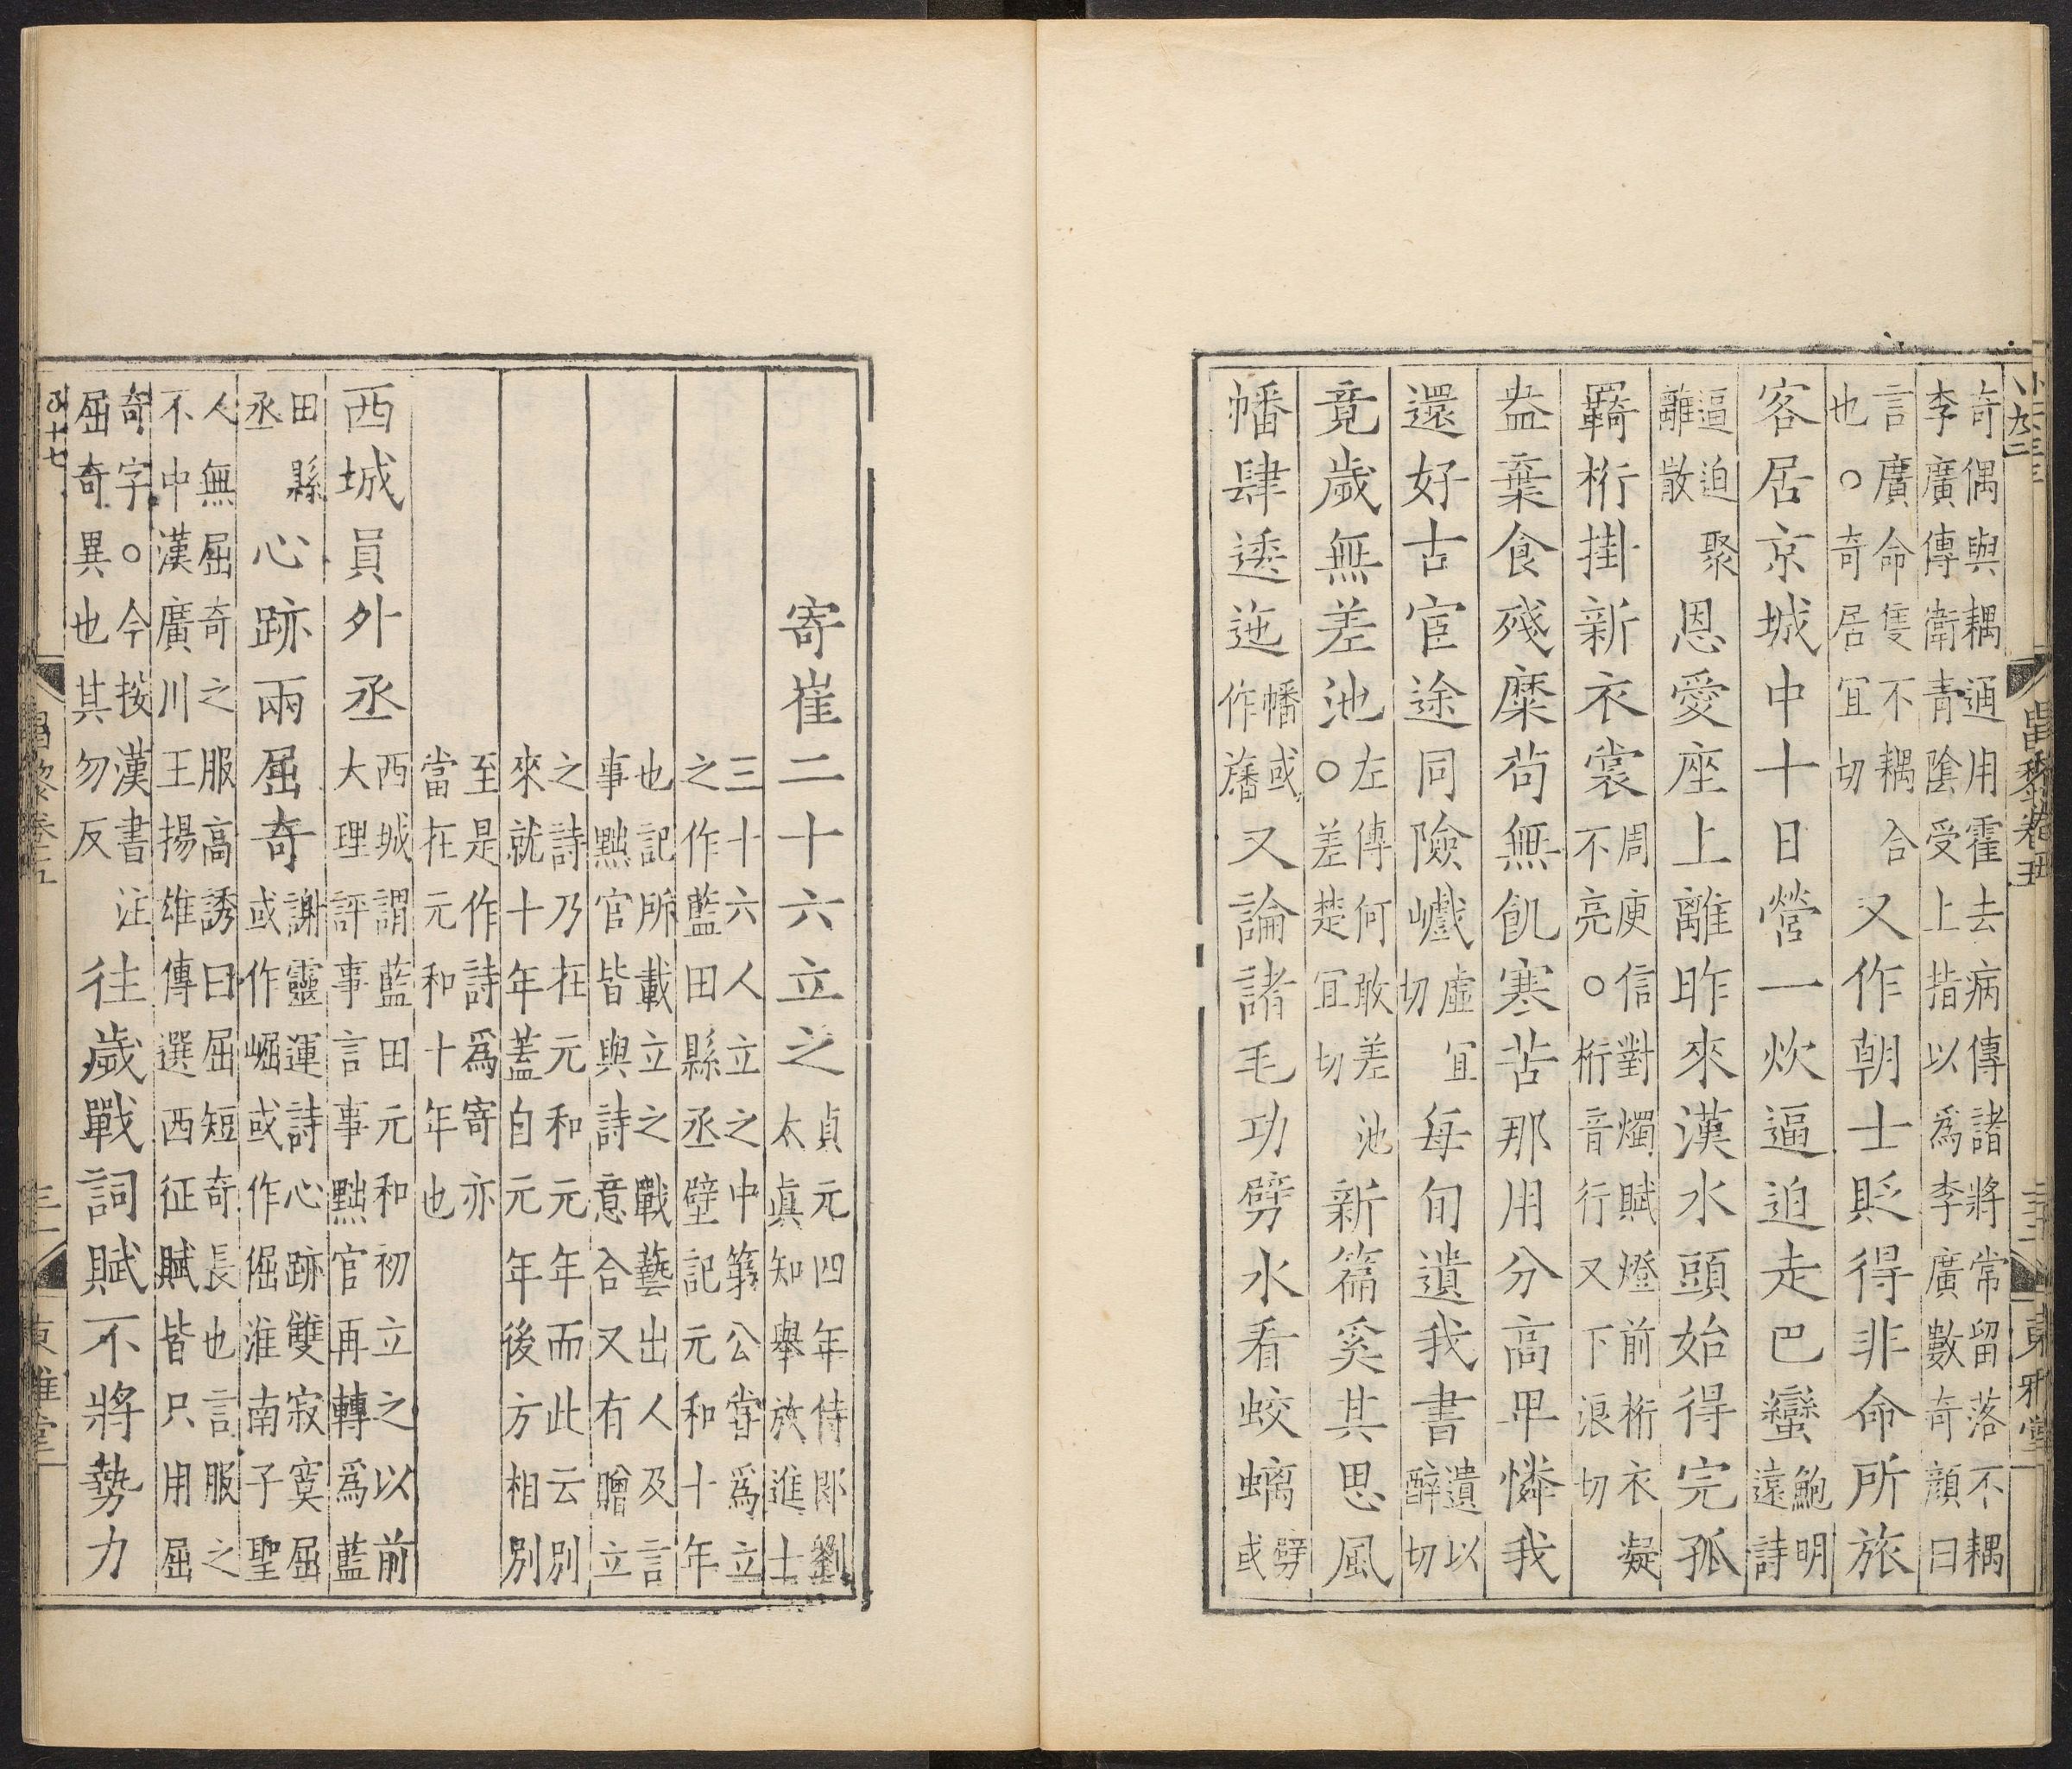 奇偶與耦通用霍去病傳諸將常留落不耦
李廣傳衛青陰受上指以爲李廣數奇顏曰
言廣命隻不耦合
也○奇居宜切
又作朝士貶得非命所旅
客居京城中十日營一炊逼迫走巴蠻
鮑明
遠詩
逼迫聚
離散
恩愛座上離昨來漢水頭始得完孤
羇桁掛新衣裳
周庾信對燭賦燈前桁衣疑
不亮○桁音行又下浪切
盎棄食殘糜苟無飢寒苦那用分高卑憐我
還好古宦途同險巇
虛宜
切
每旬遺我書
遺以
醉切
竟歲無差池
左傳何敢差池
○差楚宜切
新篇奚其思風
幡肆逶迤
幡或
作旛
又論諸毛功劈水看蛟螭
劈
或
昌黎卷五
東雅堂
寄崔二十六立之
貞元四年侍郎劉
太眞知舉放進士
三十六人立之中第公嘗爲立
之作藍田縣丞壁記元和十年
也記所載立之戰藝出人及言
事黜官皆與詩意合又有贈立
之詩乃在元和元年而此云別
來就十年蓋自元年後方相別
至是作詩爲寄亦
當在元和十年也
西城員外丞
西城謂藍田元和初立之以前
大理評事言事黜官再轉爲藍
田縣
丞
心跡兩屈奇
謝靈運詩心跡雙寂寞屈
或作崛或作倔淮南子聖
人無屈奇之服高誘曰屈短奇長也言服之
不中漢廣川王揚雄傳選西征賦皆只用屈
奇字○今按漢書注
屈奇異也其勿反
往歲戰詞賦不將勢力
昌黎卷五
東雅堂